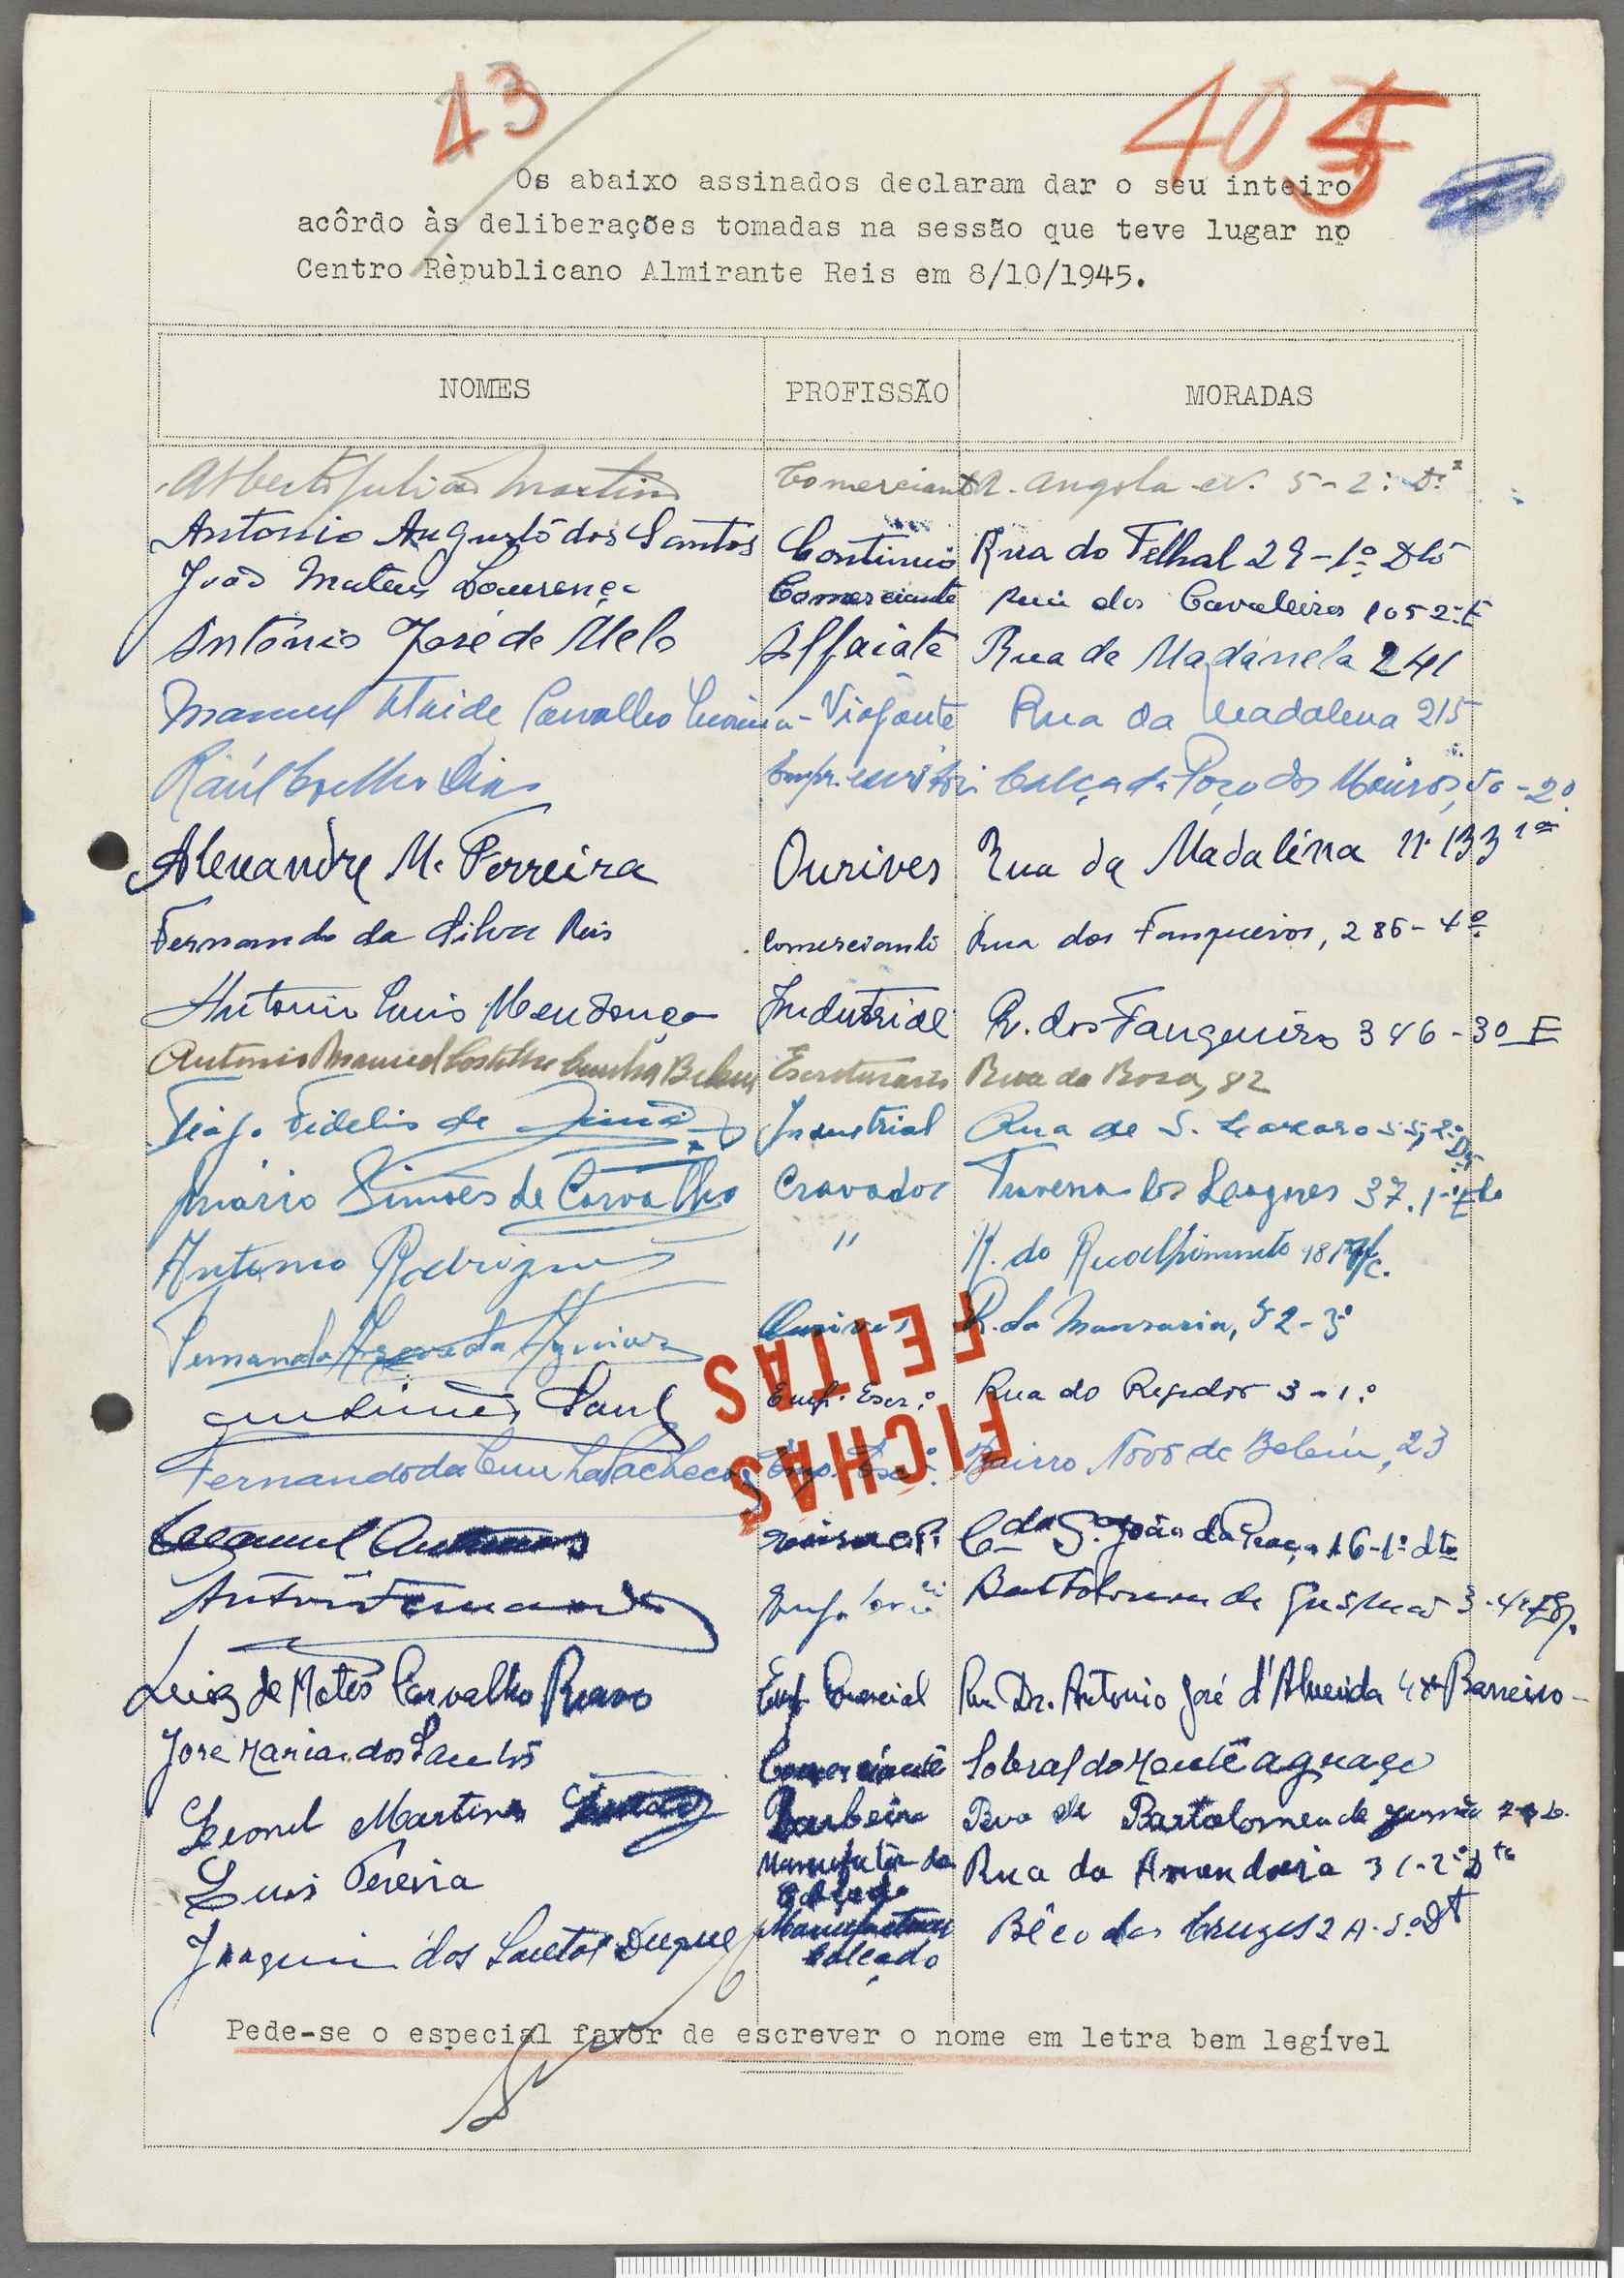 13
405
Os abaixo assinados declaram dar o seu inteiro
acôrdo às deliberações tomadas na sessão que teve lugar no
Centro Rèpublicano Almirante Reis em 8/10/1945.
NOMES PROFISSÃO MORADAS
Alberto Julião Martins Comerciante R. Angola 5-2º Dº
Antonio Augusto dos Santos Continuo Rua do Telhal 29-1º Dtº
João Mateus Lourenço Comerciante Rua dos Cavaleiros 105 2º E
António José de Melo Alfaiate Rua da Madanela 241
Manuel Ataide Carvalho Viajante Rua da Madalena 215
Raúl Coelho Dias Calçada Poço dos Mouros, -2º
Alexandre M. Ferreira Ourives Rua da Madalena nº 133 1º
Fernando da Silva Reis Comerciante Rua dos Fanqueiros, 286-4º
Antonio Luis Mendonça Industrial R. dos Fanqueiros 346-3º E
Antonio Manuel Cunha Belem Escriturario Rua da Rosa, 82
Fidelis de Industrial Rua de S. Lazaro 55, 2º Dº
Mário Simões de Carvalho Cravador Travessa dos 37. 1º
Antonio Rodrigues " R. do
Fernando Azevedo Ourives R. da 52-3º
Saul Emp. Escr.º Rua do Regedor 3-1º
Fernando da Cunha Pacheco Emp. Esc.º Bairro Novo de Belém, 23
FICHAS
FEITAS
Manuel Cda S. João da Praça 16-1º dto
António Fernandes Bartolomeu de Gusmão 3-4º
Luiz de Matos Carvalho Emp Comercial Rua Dr. Antonio José d'Almeida Barreiro
José Maria dos Santos Comerciante Sobral do Monte Agraço
Leonel Martins Barbeiro Rua de Bartolomeu de Gusmão
Luis Pereira Manufator de Rua da Amendoeira 31-2º Dto
Calçado
Joaquim dos Santos Duque Bêco das Cruzes 2A-5º Dt
Calçado
Pede-se o especial favor de escrever o nome em letra bem legível